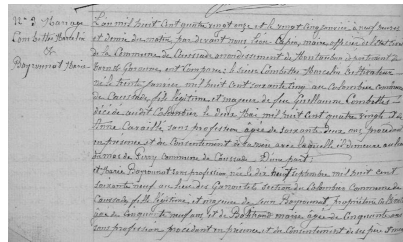 N° 3 Mariage
Combettes Marcelin
et
Bayounnat Marie
L'an mil huit cent quatre vingt onze et le vingt cinq janvier à neuf heures
et demie du matin, par devant nous Léon maire officier de l'état civil
de la Commune de Caussade arrondissement de Montauban département de
Tarn et Garonne, ont Comparu: le sieur Combettes Marcelin Cultivateur
né le trente janvier mil huit cent soixante cinq au Colombier Commune
de Caussade, fils légitime et majeur de feu Guillaume Combettes
décédé audit Colombier le deux Mai mil huit cent quatre vingt et de
sans profession âgée de soixante deux ans procédant
en présence et du Consentement de sa mère avec laquelle il demeure au lieu
du mas de commune de Caussade. D'une part;
et Marie Bayounnat sans profession née le dix huit septembre mil huit cent
soixante neuf au lieu des section du Colombier Commune de
Caussade fille légitime et majeure de Jean Bayounnat, propriétaire
âgé de Cinquante neuf ans et de Marie âgée de Cinquante ans
sans profession procédant en présence et du Consentement de ses père et mère